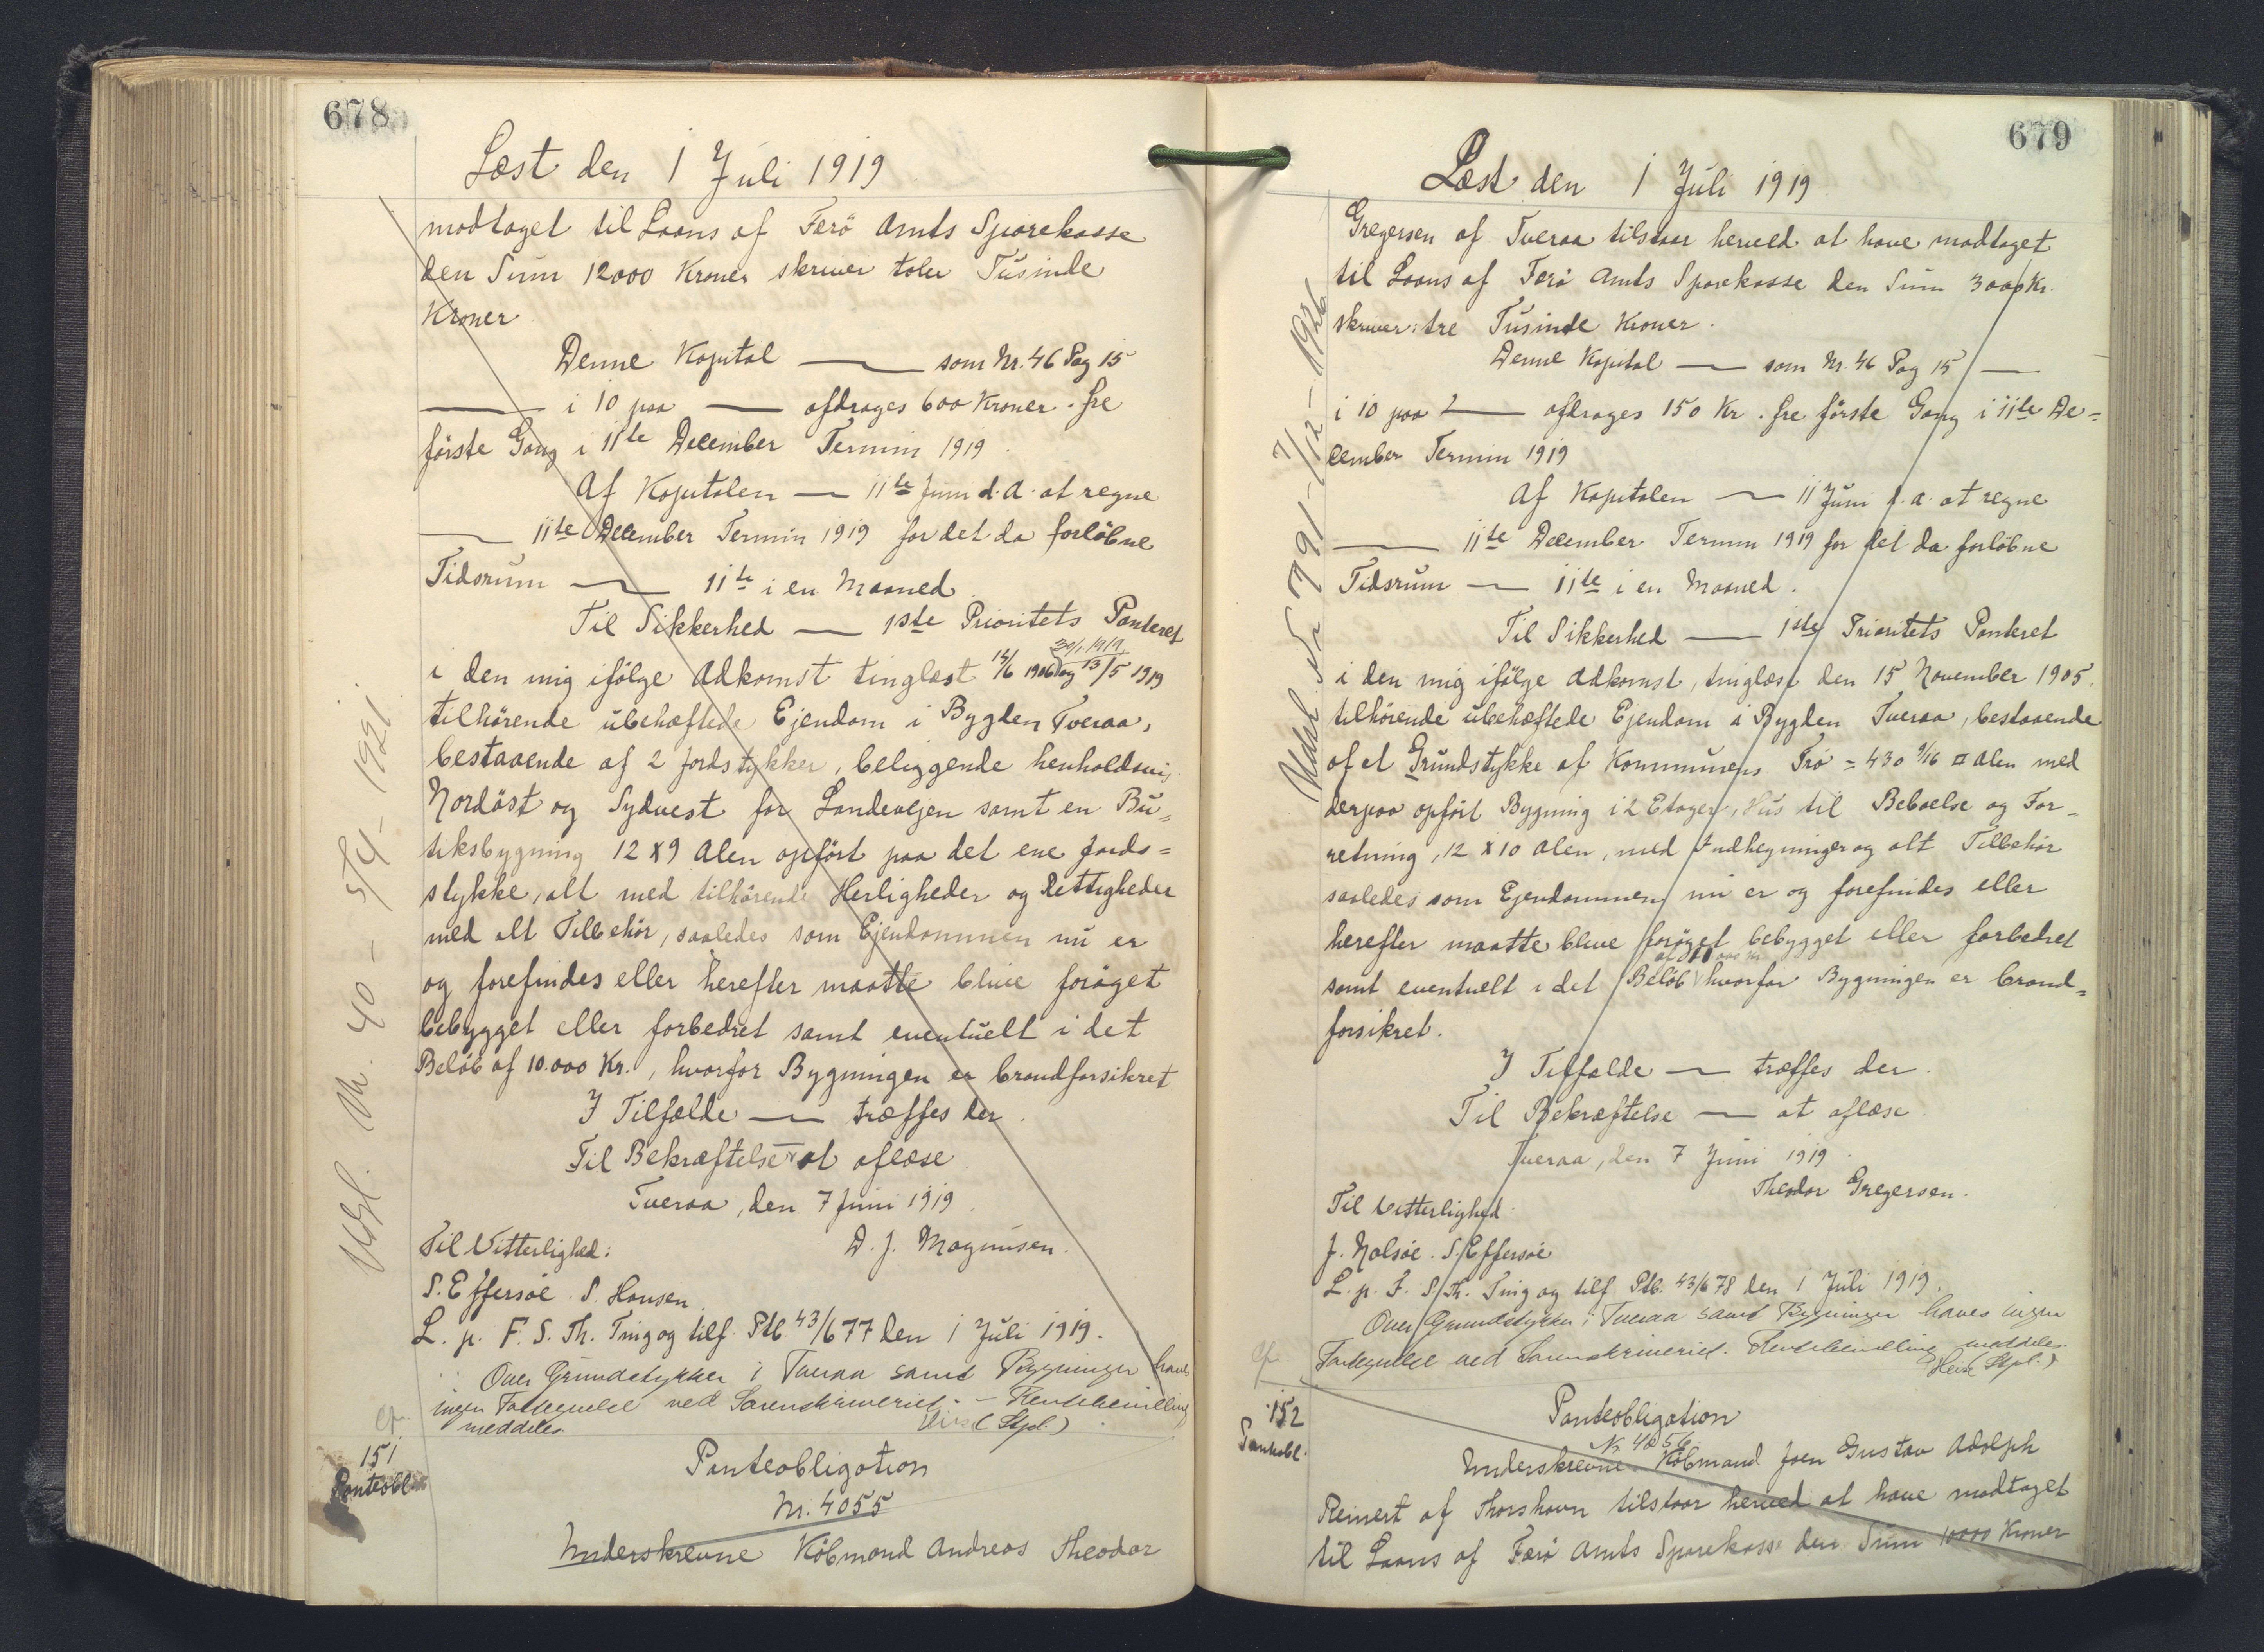 678
Læst den 1 Juli 1919
modtaget til Laans af Færö Amts Sparekasse
den Sum 12000 Kroner skriver tolv Tusinde
Kroner
Denne Kapital — som Nr. 46 Pag 15
— i 10 paa — afdrages 600 Kroner. fre
förste Gang i 11te December Termin 1919
Af Kapitalen — 11te Juni d. A. at regne
— 11te December Termin 1919 for det da forlöbne
Tidsrum — 11te i en Maaned
Til Sikkerhed — 1ste Prioritets Panteret
i den mig ifölge Adkomst tinglæst 14/6 1906 og 13/5 1919
tilhörende ubehæftede Ejendom i Bygden Tveraa,
bestaaende af 2 Jordstykker, beliggende henholdsvis
Nordöst og Sydvest for Landevejen samt en Bu=
tiksbygning 12 x 9 Alen opfört paa det ene Jords=
stykke, alt med tilhörende Herligheder og Rettigheder
med alt Tilbehör, saaledes som Ejendommen nu er
og forefindes eller herefter maatte blive foröget
bebygget eller forbedret samt eventuelt i det
Belöb af 10.000 Kr., hvorfor Bygningen er brandforsikret
I Tilfælde — træffes der
Til Bekræftelse — at aflæse
Tveraa, den 7 Juni 1919
Til Vitterlighed: D. J. Magnussen.
S. Effersöe. S. Hansen.
L. p. F. S. Th. Ting og tilf. Ptb 43/677 den 1 Juli 1919.
Over Grundstykker i Tveraa samt Bygninger haves
ingen Fortegnelse ved Sorenskriveriet. – Rentebevilling
meddeles. (Stpl.)
Udsl. Nr. 40 – 5/4 – 1921
cfr.
151
Panteobl.
Panteobligation
Nr. 4055
Underskrevne Köbmand Andreas Theodor
679
Læst den 1 Juli 1919
Gregersen af Tveraa tilstaar herved at have modtaget
til Laans af Færö Amts Sparekasse den Sum 3000 Kr.
skriver: tre Tusinde Kroner.
Denne Kapital — som Nr. 46 Pag 15 —
i 10 paa — afdrages 150 Kr. fre förste Gang i 11te De=
cember Termin 1919
Af Kapitalen — 11 Juni d. A. at regne
— 11te December Termin 1919 for det da forlöbne
Tidsrum — 11te i en Maaned.
Til Sikkerhed — 1ste Prioritets Panteret
i den mig ifölge Adkomst, tinglæst den 15 November 1905,
tilhörende ubehæftede Ejendom i Bygden Tveraa, bestaaende
af et Grundstykke af Kommunens Trö = 430 9/16 □ Alen med
derpaa opfört Bygning i 2 Etager, Hus til Beboelse og For=
retning, 12 x 10 Alen, med Indhegninger og alt Tilbehör
saaledes som Ejendommen nu er og forefindes eller
herefter maatte blive foröget bebygget eller forbedret
samt eventuelt i det Belöb hvorfor Bygningen er brand=
forsikret.
I Tilfælde — træffes der.
Til Bekræftelse — at aflæse
Tveraa, den 7 Juni 1919.
Theodor Gregersen.
Til Vitterlighed
J. Nolsöe. S. Effersöe
L. p. F. S. Th. Ting og tilf. Ptb. 43/678 den 1 Juli 1919.
Over Grundstykker i Tveraa samt Bygninger haves ingen
Fortegnelse ved Sorenskriveriet. Rentebevilling meddeles.
(Stpl.)
Udsl. Nr 791 – 7/12 – 1926
cfr.
152
Panteobl.
Panteobligation
Nr. 4056
Underskrevne Köbmand Joen Gustav Adolph
Reinert af Thorshavn tilstaar herved at have modtaget
til Laans af Færö Amts Sparekasse den Sum 10000 Kroner